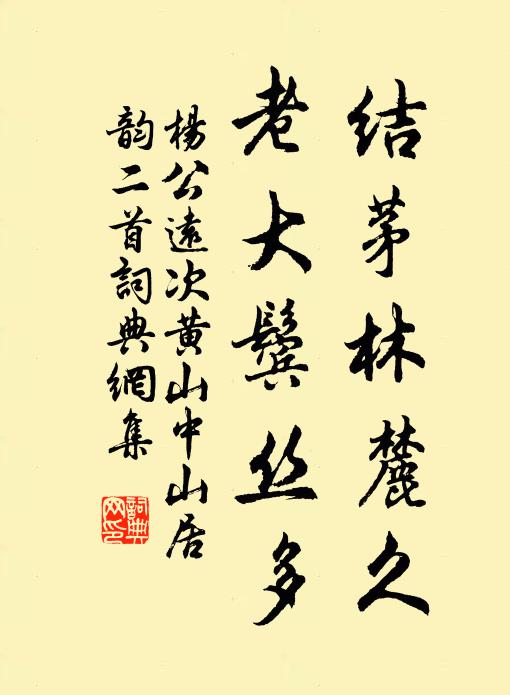 结茅林麓久
老大鬓丝多
楊公遠次黄山中山居
韵二首詞典網集
詞典
网印